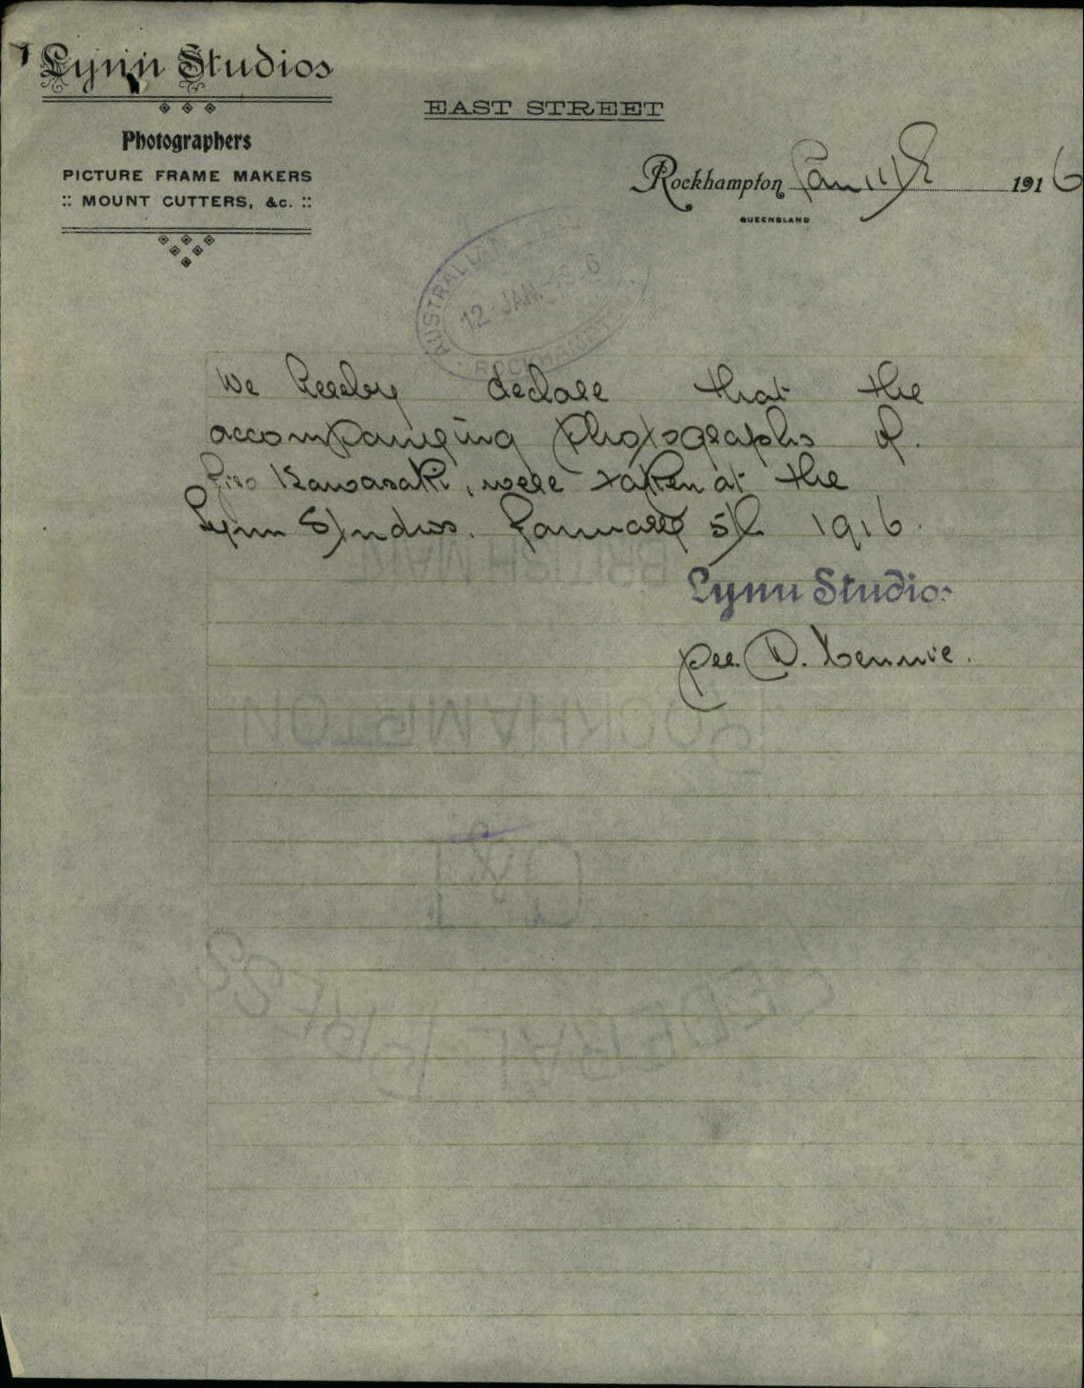 Lynn Studios
Photographers
PICTURE FRAME MAKERS
:: MOUNT CUTTERS, &c. ::
EAST STREET
Rockhampton Jan 11th 1916
QUEENSLAND
AUSTRALIAN
12 JAN 1916
ROCKHAMPTON
We hereby declare that the
accompanying photographs of
Kawasaki, were taken at the
Lynn Studios. January 5th 1916.
Lynn Studios
per D.
BRITISH MADE
ROCKHAMPTON
FEDERAL PRESS